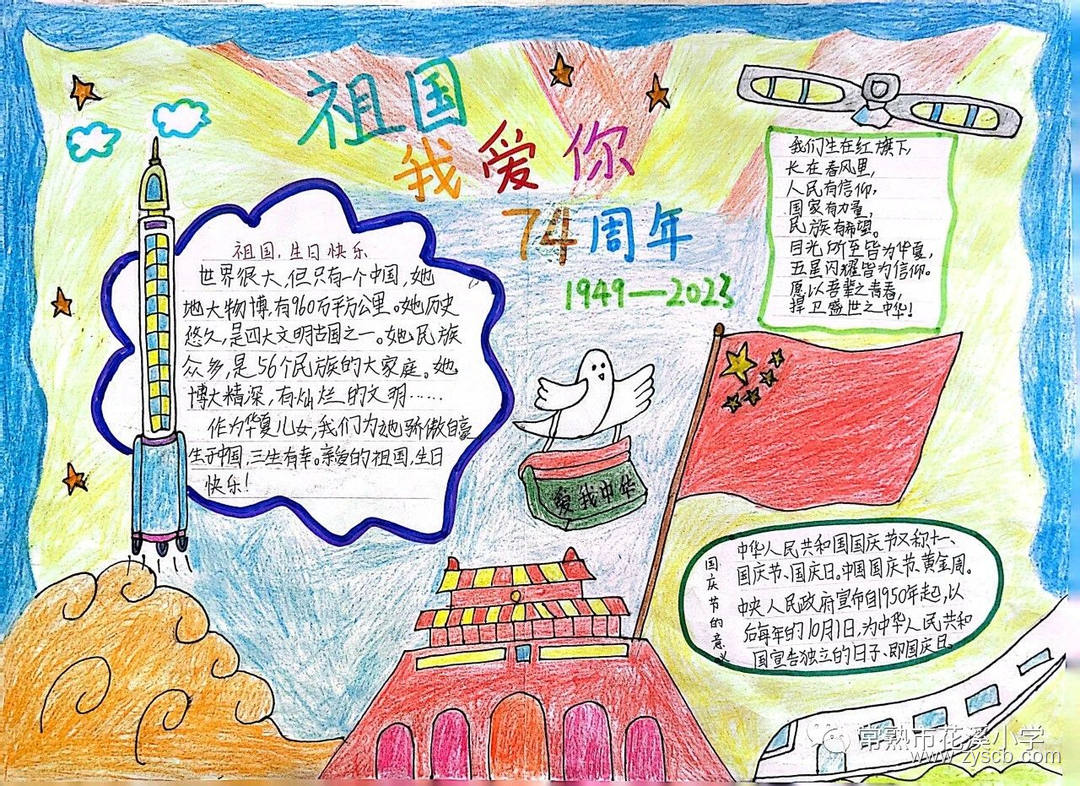 祖国
我爱你
74周年
1949—2023
祖国,生日快乐
世界很大,但只有一个中国,她
地大物博,有960万平方公里。她历史
悠久,是四大文明古国之一。她民族
众多,是56个民族的大家庭。她
博大精深,有灿烂的文明……
作为华夏儿女,我们为她骄傲自豪
生于中国,三生有幸。亲爱的祖国,生日
快乐!
我们生在红旗下,
长在春风里,
人民有信仰,
国家有力量,
民族有希望。
目光所至皆为华夏,
五星闪耀皆为信仰。
愿以吾辈之青春,
捍卫盛世之中华!
爱我中华
国庆节的意义
中华人民共和国国庆节又称十一、
国庆节、国庆日。中国国庆节、黄金周。
中央人民政府宣布自1950年起,以
后每年的10月1日,为中华人民共和
国宣告独立的日子、即国庆日。
常熟市花溪小学
www.zyscb.com